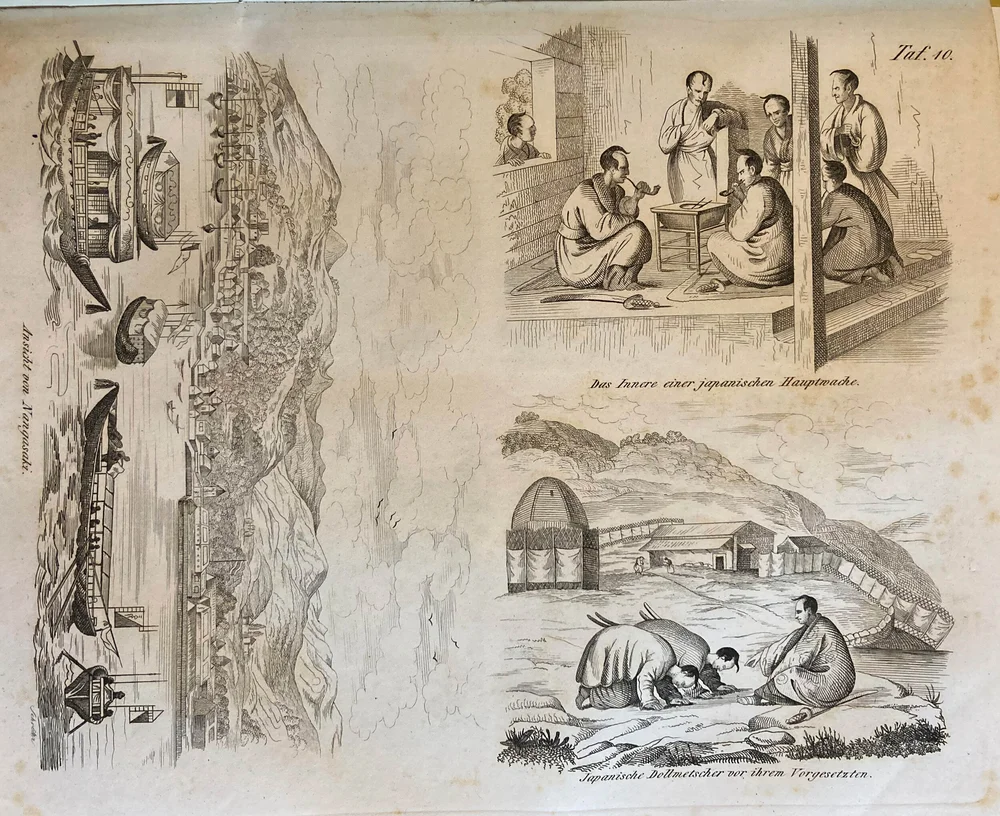 Taf. 10.
Das Innere einer japanischen Hauptwache.
Japanische Dollmetscher vor ihrem Vorgesetzten.
Ansicht von Nangasaki.